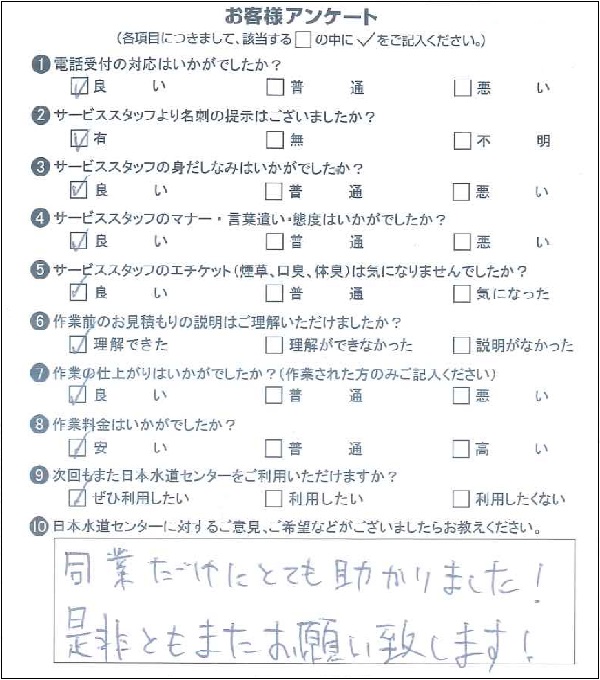 お客様アンケート
(各項目につきまして、該当する□の中に✓をご記入ください。)
❶電話受付の対応はいかがでしたか?
☑良い □普通 □悪い
❷サービススタッフより名刺の提示はございましたか?
☑有 □無 □不明
❸サービススタッフの身だしなみはいかがでしたか?
☑良い □普通 □悪い
❹サービススタッフのマナー・言葉遣い・態度はいかがでしたか?
☑良い □普通 □悪い
❺サービススタッフのエチケット(煙草、口臭、体臭)は気になりませんでしたか?
☑良い □普通 □気になった
❻作業前のお見積もりの説明はご理解いただけましたか?
☑理解できた □理解ができなかった □説明がなかった
❼作業の仕上がりはいかがでしたか?(作業された方のみご記入ください)
☑良い □普通 □悪い
❽作業料金はいかがでしたか?
☑安い □普通 □高い
❾次回もまた日本水道センターをご利用いただけますか?
☑ぜひ利用したい □利用したい □利用したくない
❿日本水道センターに対するご意見、ご希望などがございましたらお教えください。
同業だけにとても助かりました!
是非ともまたお願い致します!